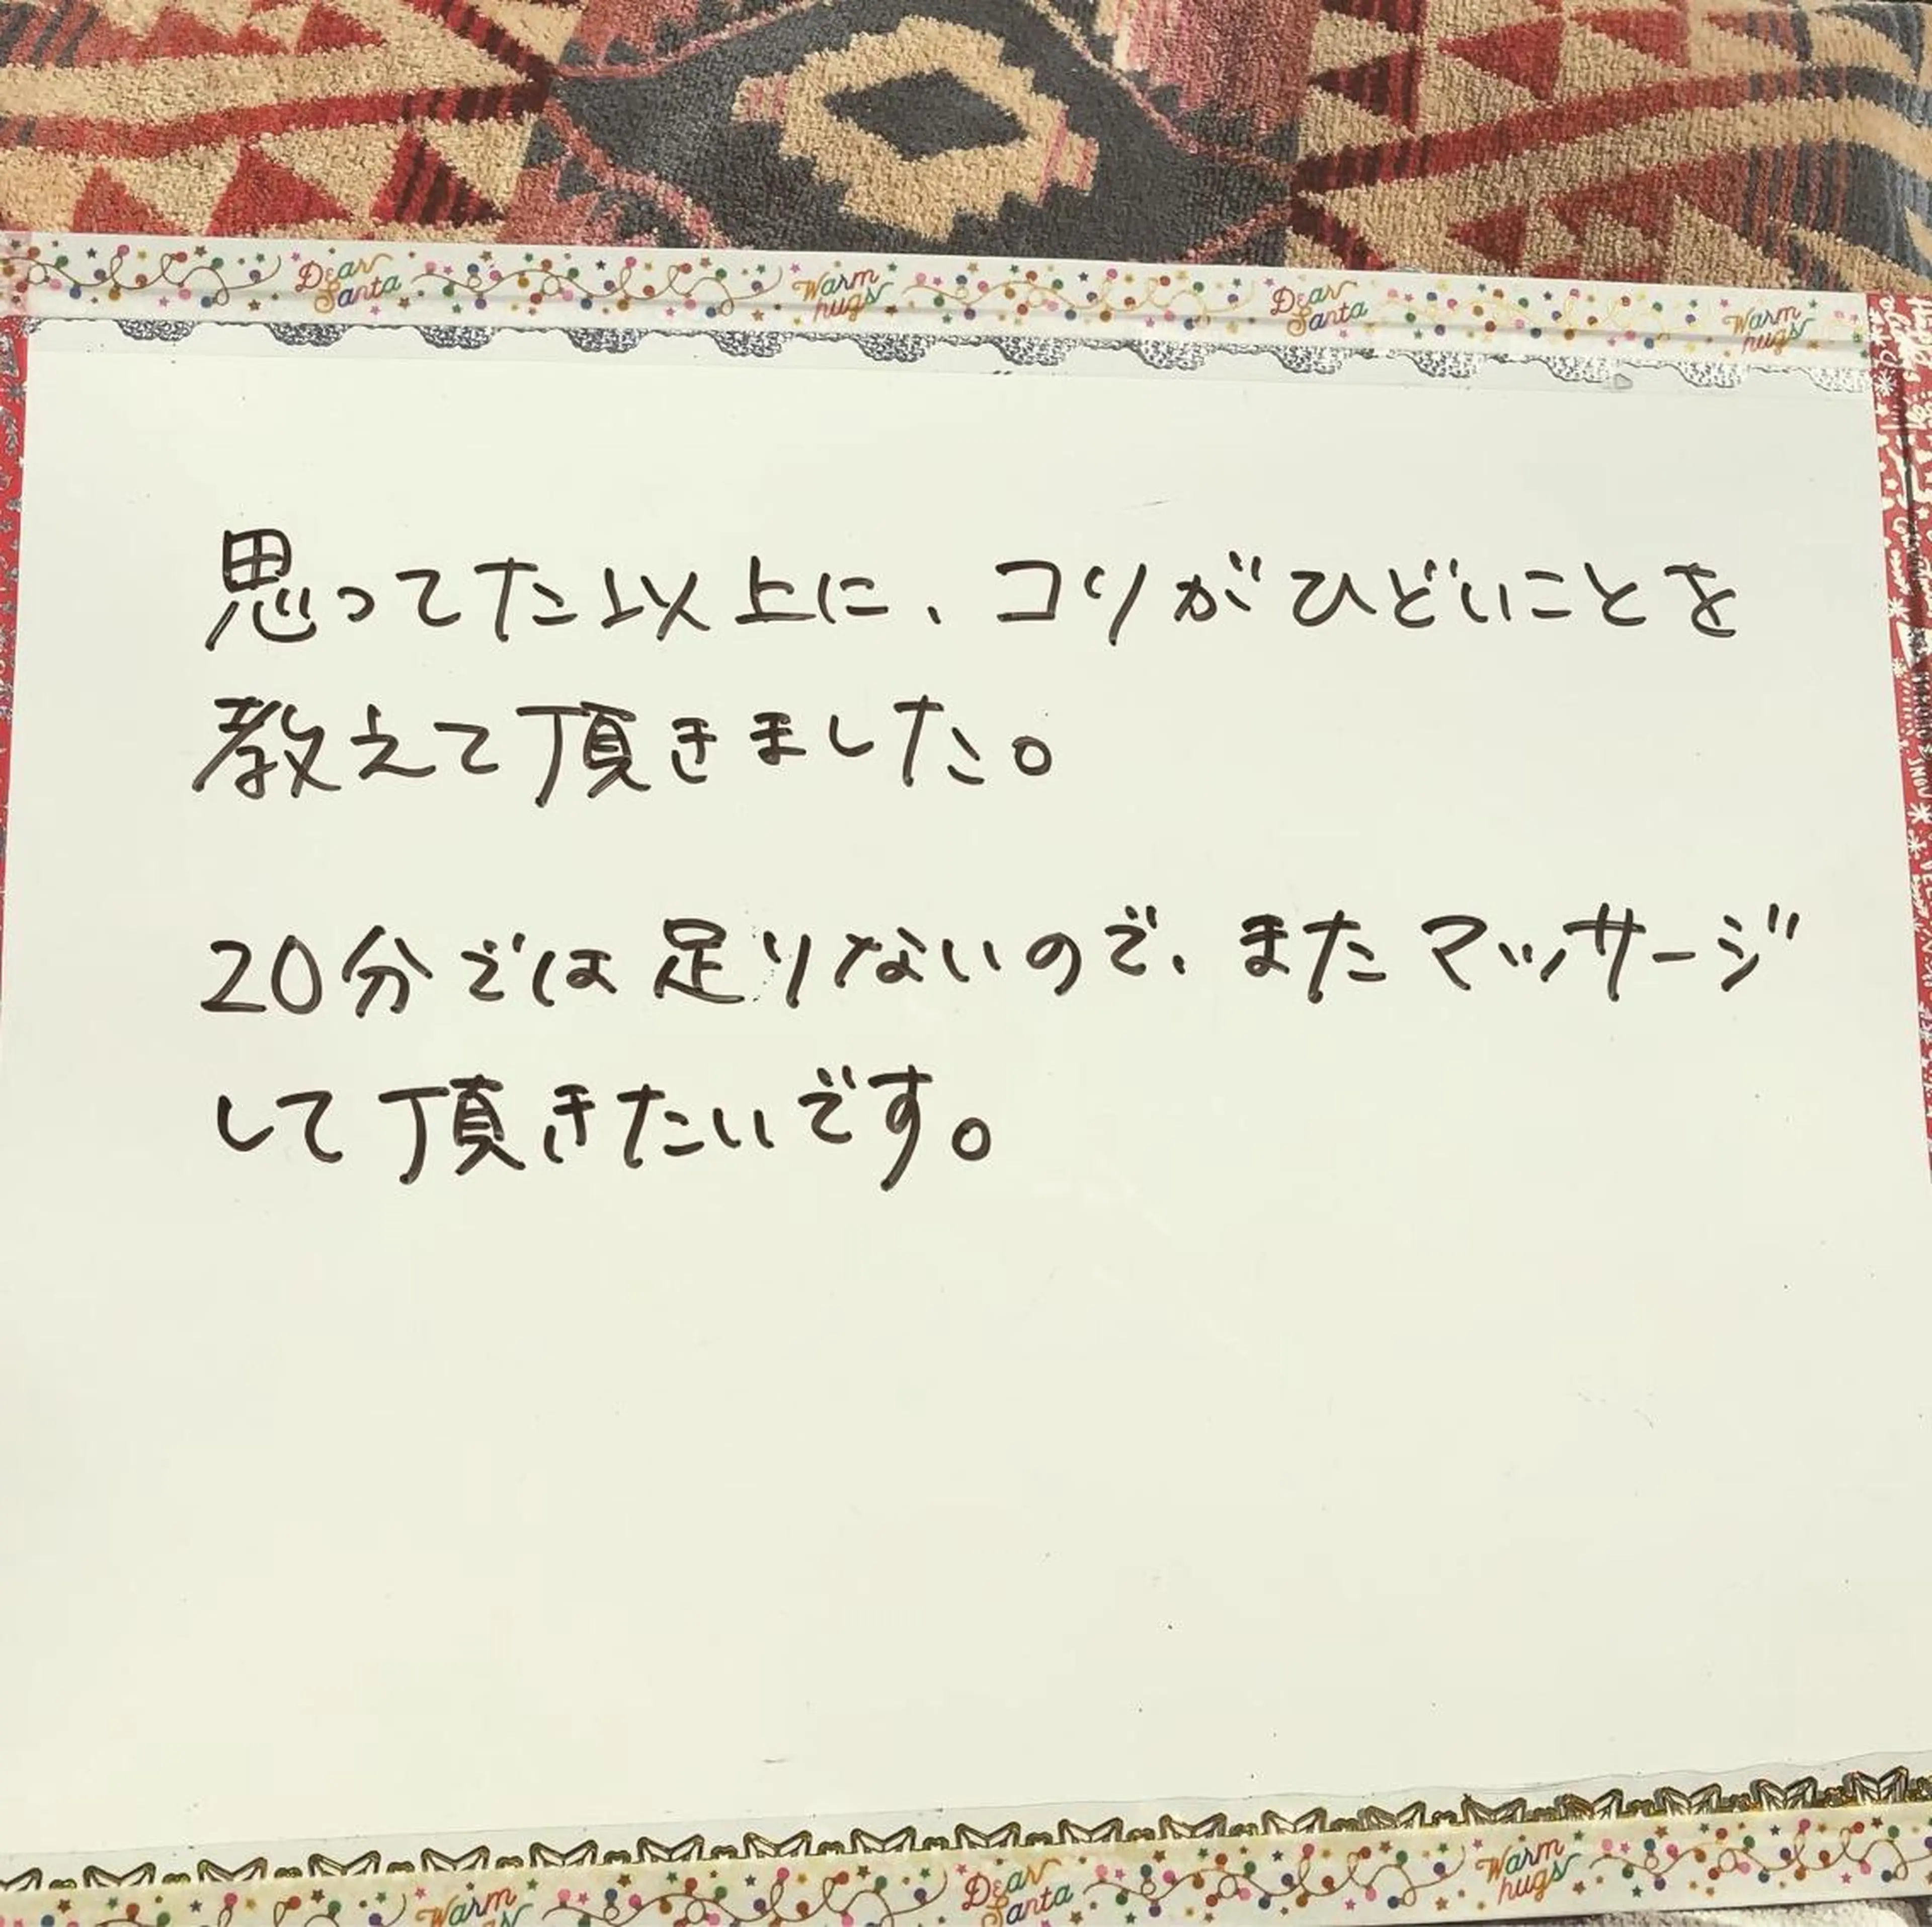 Dear Santa Warm hugs Dear Santa Warm hugs
思ってた以上に、コリがひどいことを
教えて頂きました。
20分では足りないので、またマッサージ
して頂きたいです。
Warm hugs Dear Santa Warm hugs